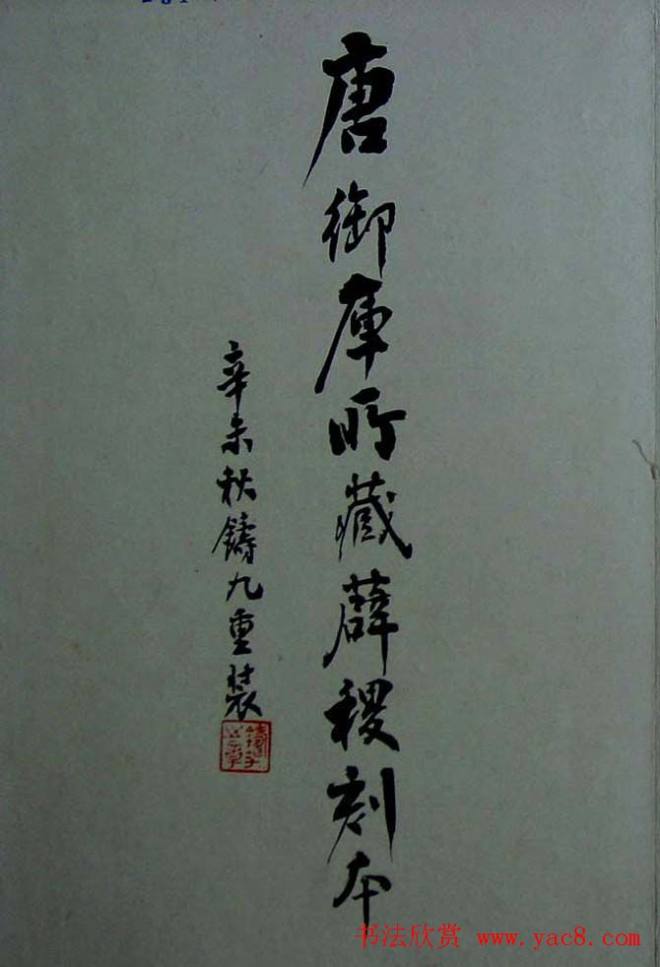 唐御库所藏薜稷刻本
辛未秋鑄九重装
书法欣赏 www.yac8.com